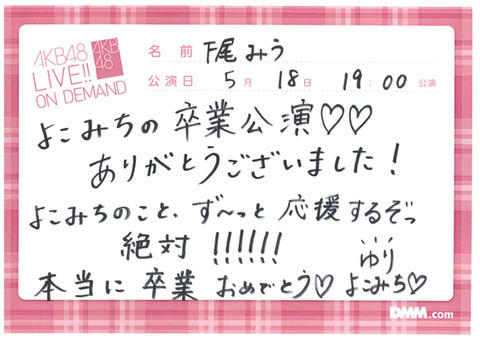 AKB48
LIVE!!
ON DEMAND
AKB
48
名前 下尾みう
公演日 5月 18日 19:00 公演
よこみちの 卒業公演♡♡
ありがとうございました！
よこみちのこと、ず〜っと 応援するぞっ
絶対 !!!!!!
ゆり
本当に 卒業 おめでとう♡ よこみち♡
DMM.com